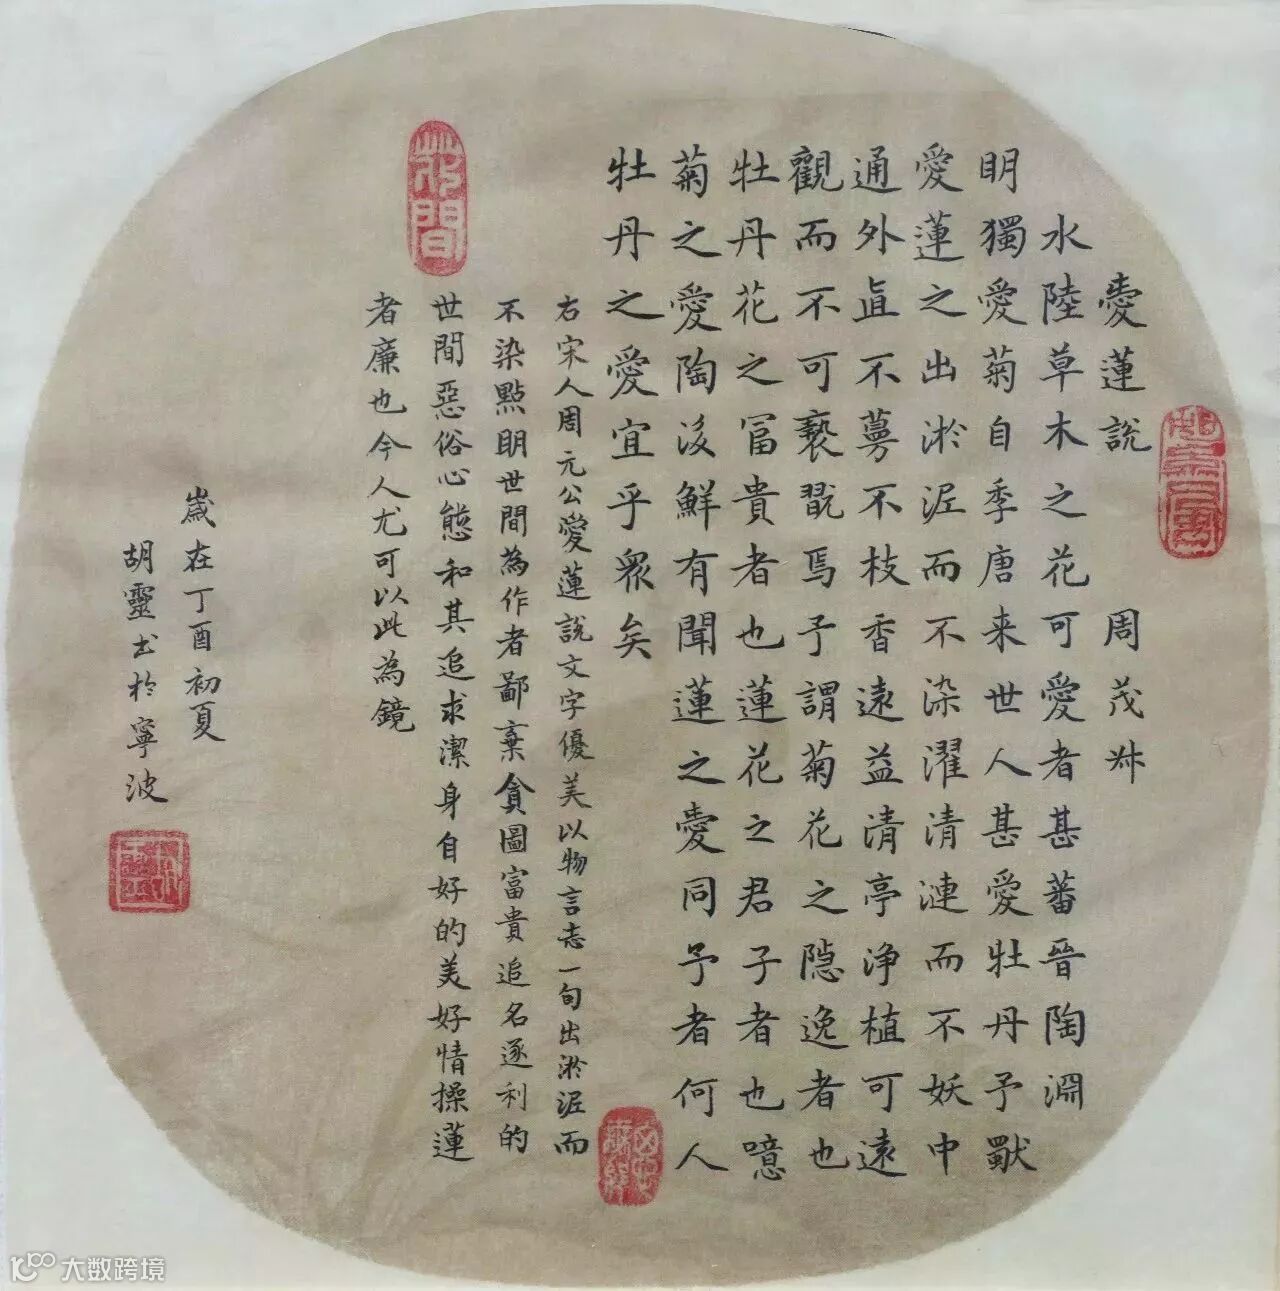 愛蓮説 周茂叔
水陸草木之花可愛者甚蕃晉陶淵
明獨愛菊自李唐来世人甚愛牡丹予獨
愛蓮之出淤泥而不染濯清漣而不妖中
通外直不蔓不枝香遠益清亭淨植可遠
觀而不可褻翫焉予謂菊花之隐逸者也
牡丹花之富貴者也蓮花之君子者也噫
菊之愛陶後鮮有聞蓮之愛同予者何人
牡丹之愛宜乎眾矣
右宋人周元公愛蓮説文字優美以物言志一句出淤泥而
不染點明世間為作者鄙棄貪圖富貴追名逐利的
世間惡俗心態和其追求潔身自好的美好情操蓮
者廉也今人尤可以此為鏡
歲在丁酉初夏
胡靈书於寧波
花間
大数跨境